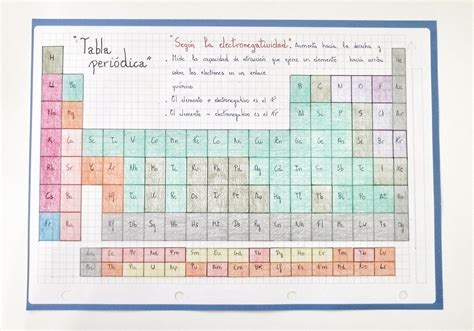 "Tabla periódica"
"Según la electronegatividad". Aumenta hacia la derecha y hacia arriba
. Mide la capacidad de atracción que ejerce un elemento sobre los electrones en un enlace químico
. El elemento + electronegativo es el F
. El elemento - electronegativo es el Fr.
H He
Li Be B C N O F Ne
Na Mg
K Ca Sc Ti V Cr Mn Fe Co Ni Cu Zn
Rb Sr Y Zr Nb Mo Tc Ru Rh Pd Ag Cd
Cs Ba Hf Ta W Re Os Ir Pt Au Hg
Fr Ra Rf Db Sg Bh Hs Mt Ds Rg
Ce Pr Nd Pm Sm Eu Gd Tb Dy Ho Er Tm Yb Lu
Th Pa U Np Pu Am Cm Bk Cf Es Fm Md No Lr